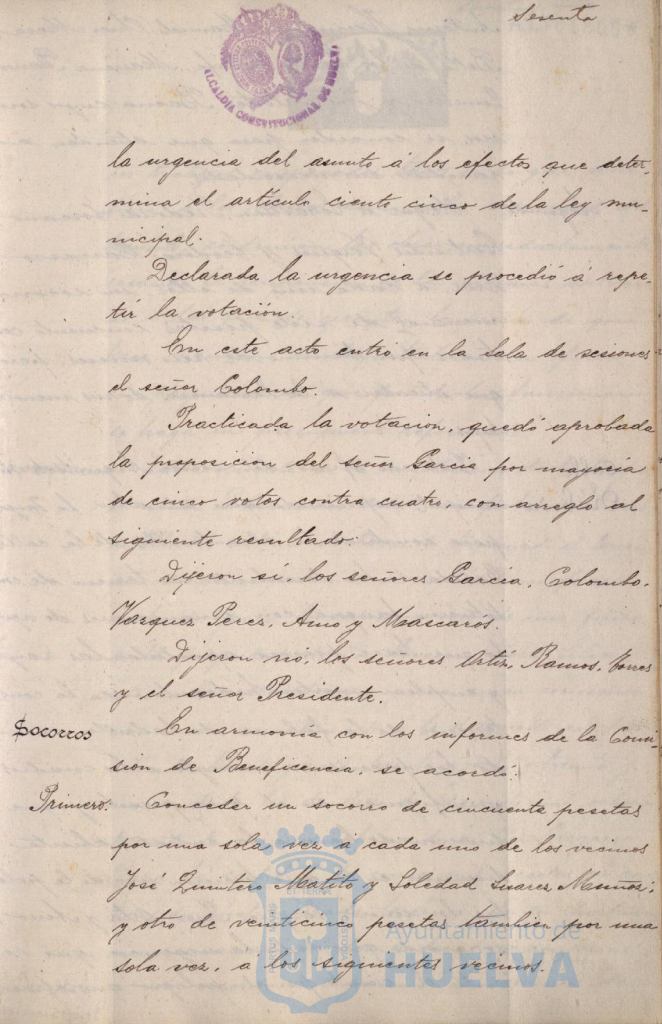 Sesenta
ALCALDIA CONSTITUCIONAL DE HUELVA
la urgencia del asunto á los efectos que deter-
mina el artículo ciento cinco de la ley mu-
nicipal.
Declarada la urgencia se procedió á repe-
tir la votación.
En este acto entró en la Sala de sesiones
el señor Colombo.
Practicada la votacion, quedó aprobada
la proposicion del señor Garcia por mayoria
de cinco votos contra cuatro, con arreglo al
siguiente resultado:
Dijeron sí, los señores Garcia, Colombo,
Vazquez Perez, Amo y Mascarós.
Dijeron nó, los señores Ortiz, Ramos, Torres
y el señor Presidente.
Socorros
En armonía con los informes de la Comi-
sion de Beneficencia, se acordó:
Primero:
Conceder un socorro de cincuenta pesetas
por una sola vez á cada uno de los vecinos
José Quintero Matito y Soledad Suarez Muñoz;
y otro de veinticinco pesetas tambien por una
sola vez, á los siguientes vecinos.
Ayuntamiento de
HUELVA